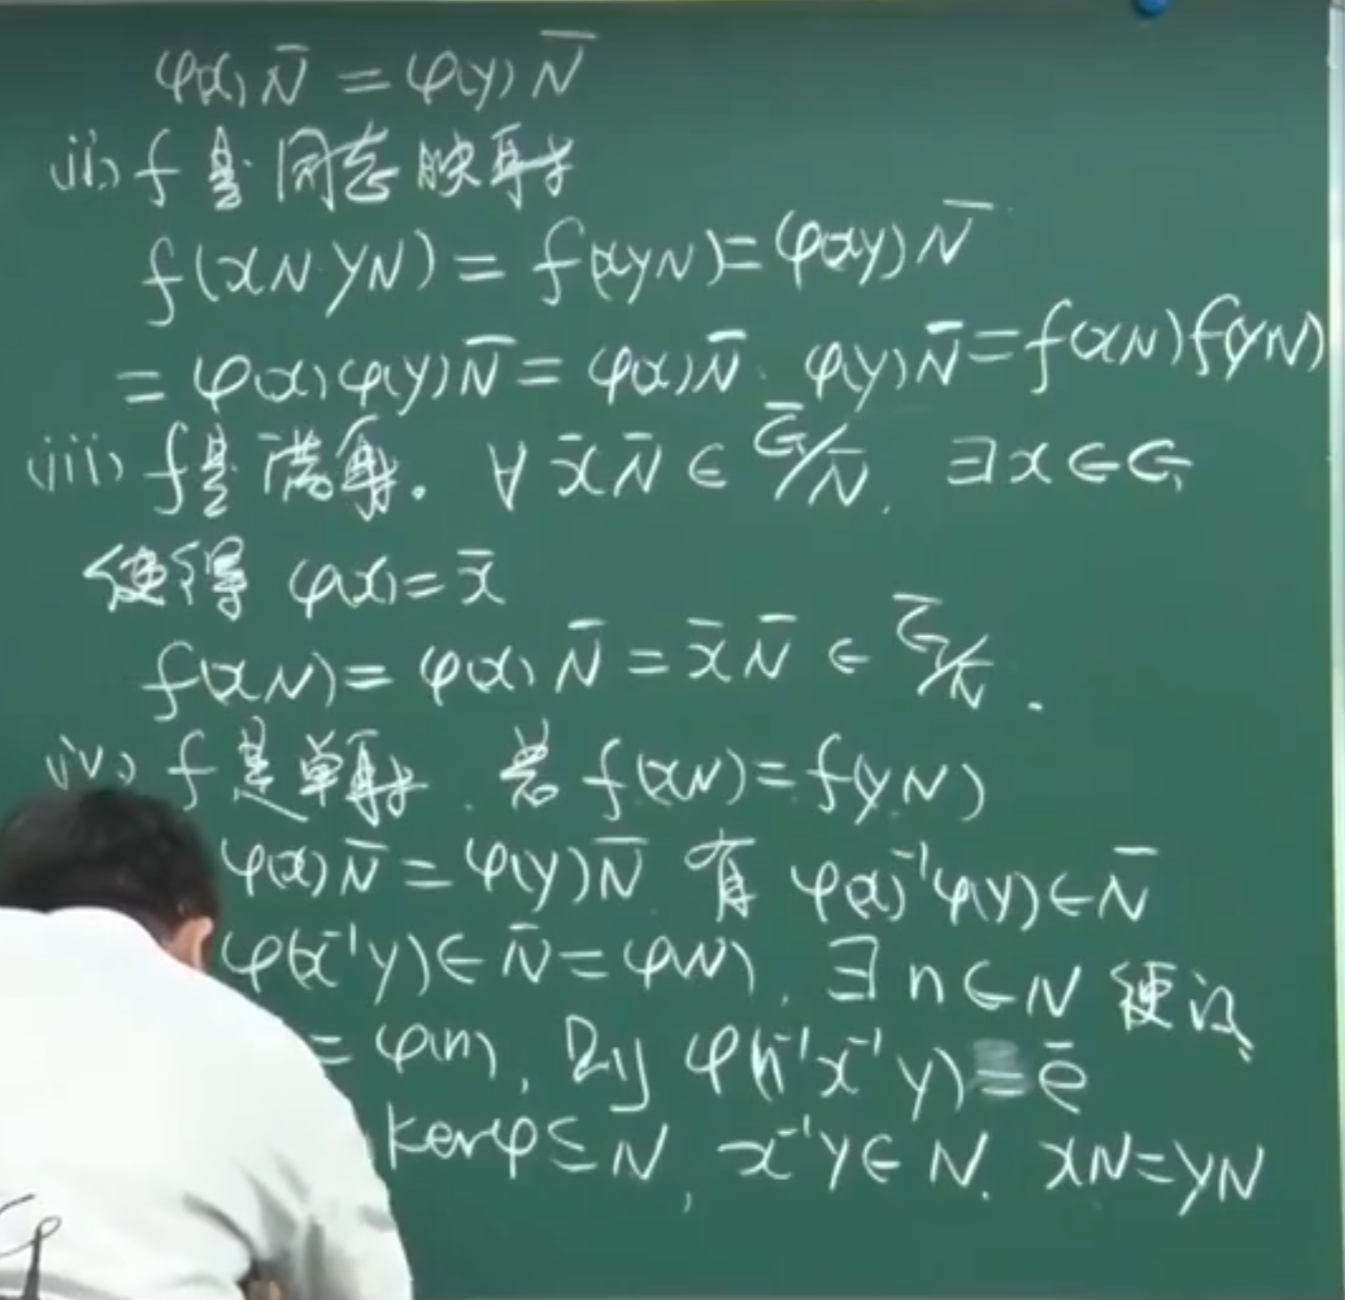 φ(x)N̄ = φ(y)N̄
(ii) f 是 同态 映射
f(xN yN) = f(xyN) = φ(xy)N̄
= φ(x)φ(y)N̄ = φ(x)N̄ · φ(y)N̄ = f(xN)f(yN)
(iii) f是满射. ∀ x̄N̄ ∈ Ḡ/N̄, ∃x∈G,
使得 φ(x)=x̄
f(xN) = φ(x)N̄ = x̄N̄ ∈ Ḡ/N̄.
(iv) f 是单射. 若 f(xN) = f(yN)
φ(x)N̄ = φ(y)N̄ 有 φ(x)⁻¹φ(y)∈N̄
φ(x⁻¹y)∈N̄=φ(N), ∃ n∈N 使得
= φ(n), 则 φ(n⁻¹x⁻¹y) = ē
kerφ⊆N, x⁻¹y∈N. xN=yN